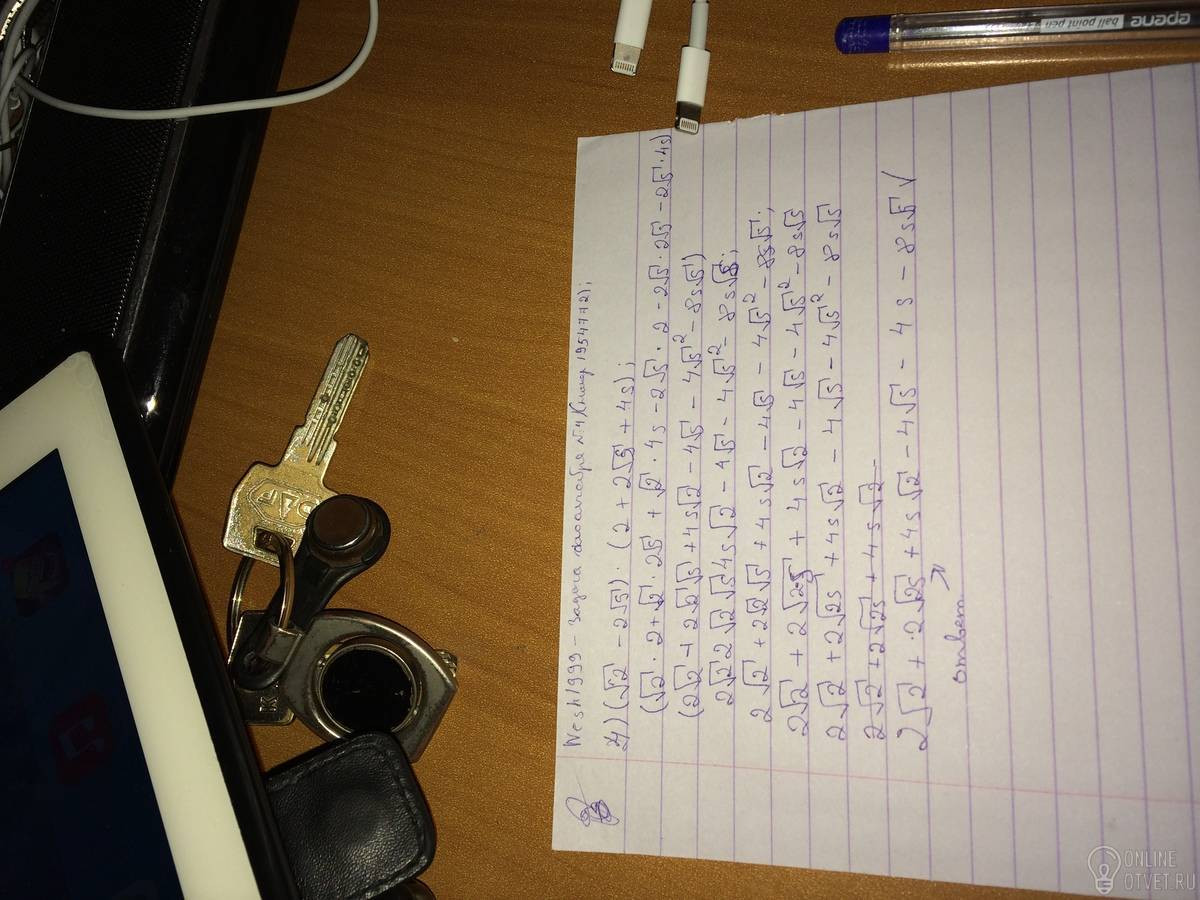 Nesh1999 - Задача по алгебре №4 (номер 1954772);
4) (√2 - 2√5) · (2 + 2√5 + 4s);
(√2 · 2 + √2 · 2√5 + √2 · 4s - 2√5 · 2 - 2√5 · 2√5 - 2√5 · 4s)
(2√2 + 2√2√5 + 4s√2 - 4√5 - 4√5² - 8s√5)
2√2 2√2√5 4s√2 - 4√5 - 4√5² - 8s√5;
2√2 + 2√2√5 + 4s√2 - 4√5 - 4√5² - 8s√5;
2√2 + 2√25 + 4s√2 - 4√5 - 4√5² - 8s√5
2√2 + 2√25 + 4s√2 - 4√5 - 4√5² - 8s√5
2√2 + 2√25 + 4s√2
2√2 + · 2√25 + 4s√2 - 4√5 - 4s - 8s√5 √
ответ ↗
epene
ball point pen
ONLINE
OTVET.RU